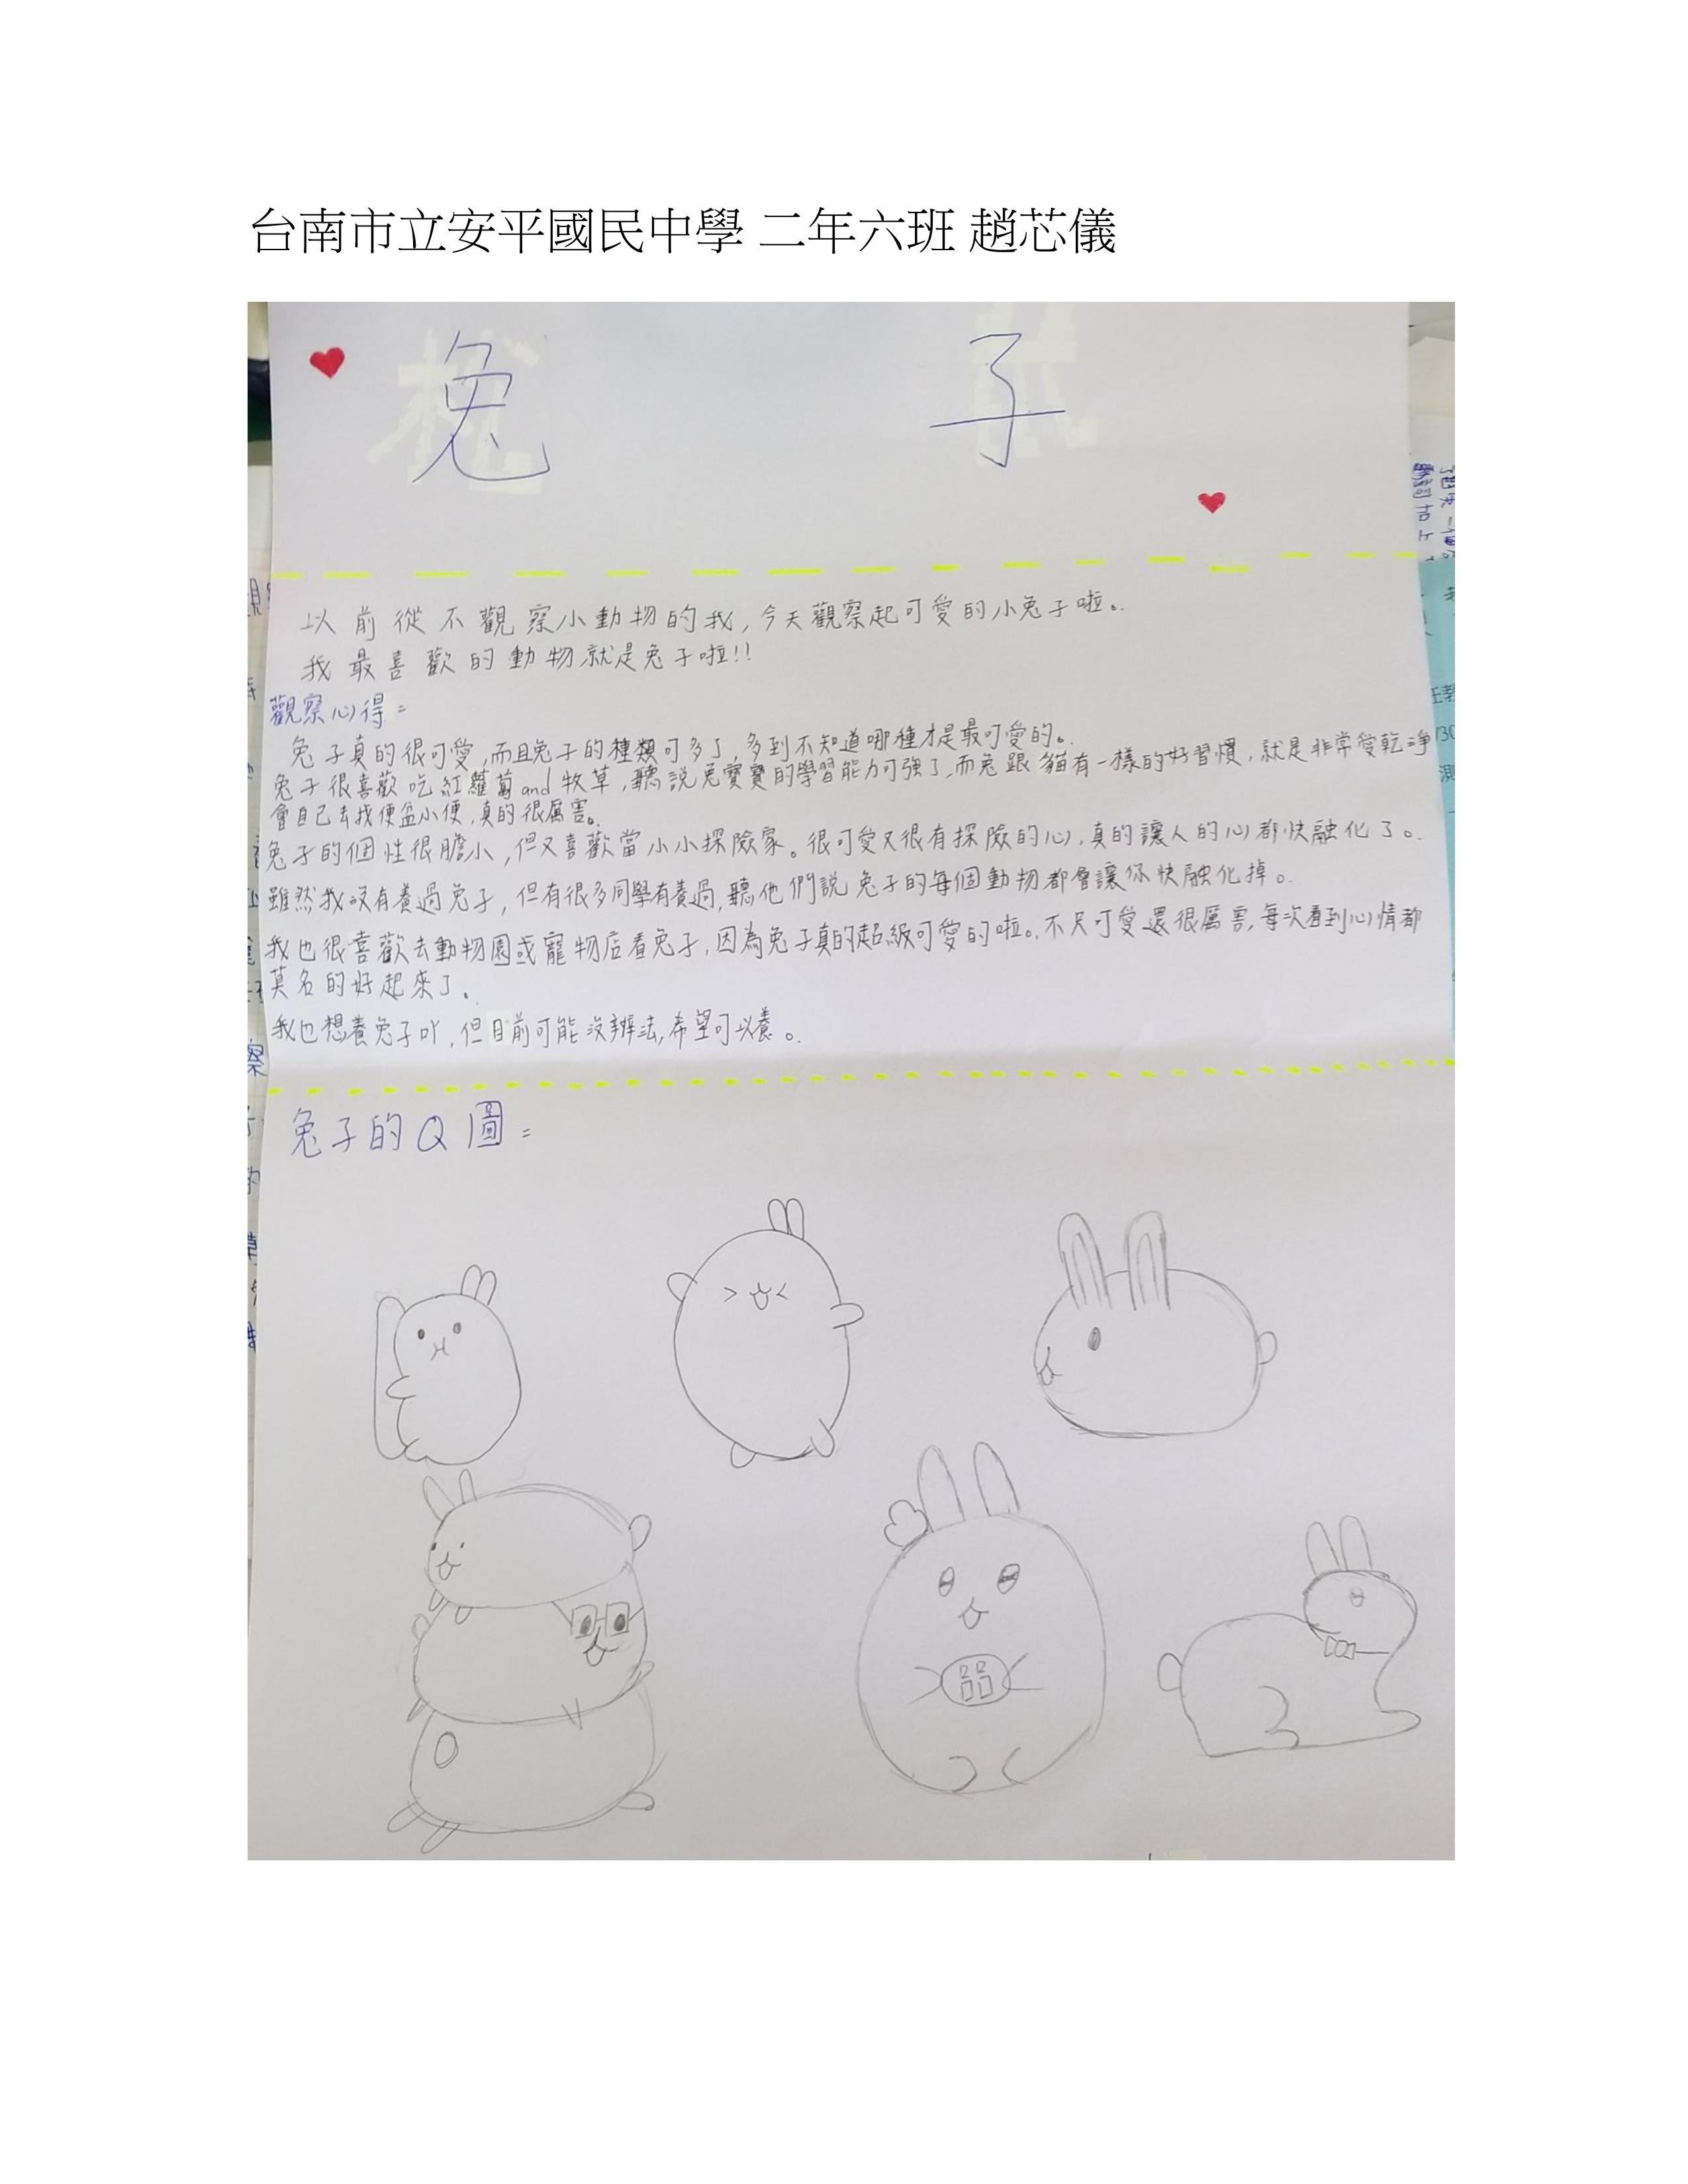 台南市立安平國民中學 二年六班 趙芯儀
兔 子
以前從不觀察小動物的我,今天觀察起可愛的小兔子啦。
我最喜歡的動物就是兔子啦!!
觀察心得=
兔子真的很可愛,而且兔子的種類可多了,多到不知道哪種才是最可愛的。
兔子很喜歡吃紅蘿蔔and牧草,聽說兔寶寶的學習能力可強了,而兔跟貓有一樣的好習慣,就是非常愛乾淨
會自己去找便盆小便,真的很厲害。
兔子的個性很膽小,但又喜歡當小小探險家。很可愛又很有探險的心,真的讓人的心都快融化了。
雖然我沒有養過兔子,但有很多同學有養過,聽他們說兔子的每個動物都會讓你快融化掉。
我也很喜歡去動物園或寵物店看兔子,因為兔子真的超級可愛的啦。不只可愛還很厲害,每次看到心情都
莫名的好起來了。
我也想養兔子吖,但目前可能沒辦法,希望可以養。
兔子的Q圖=